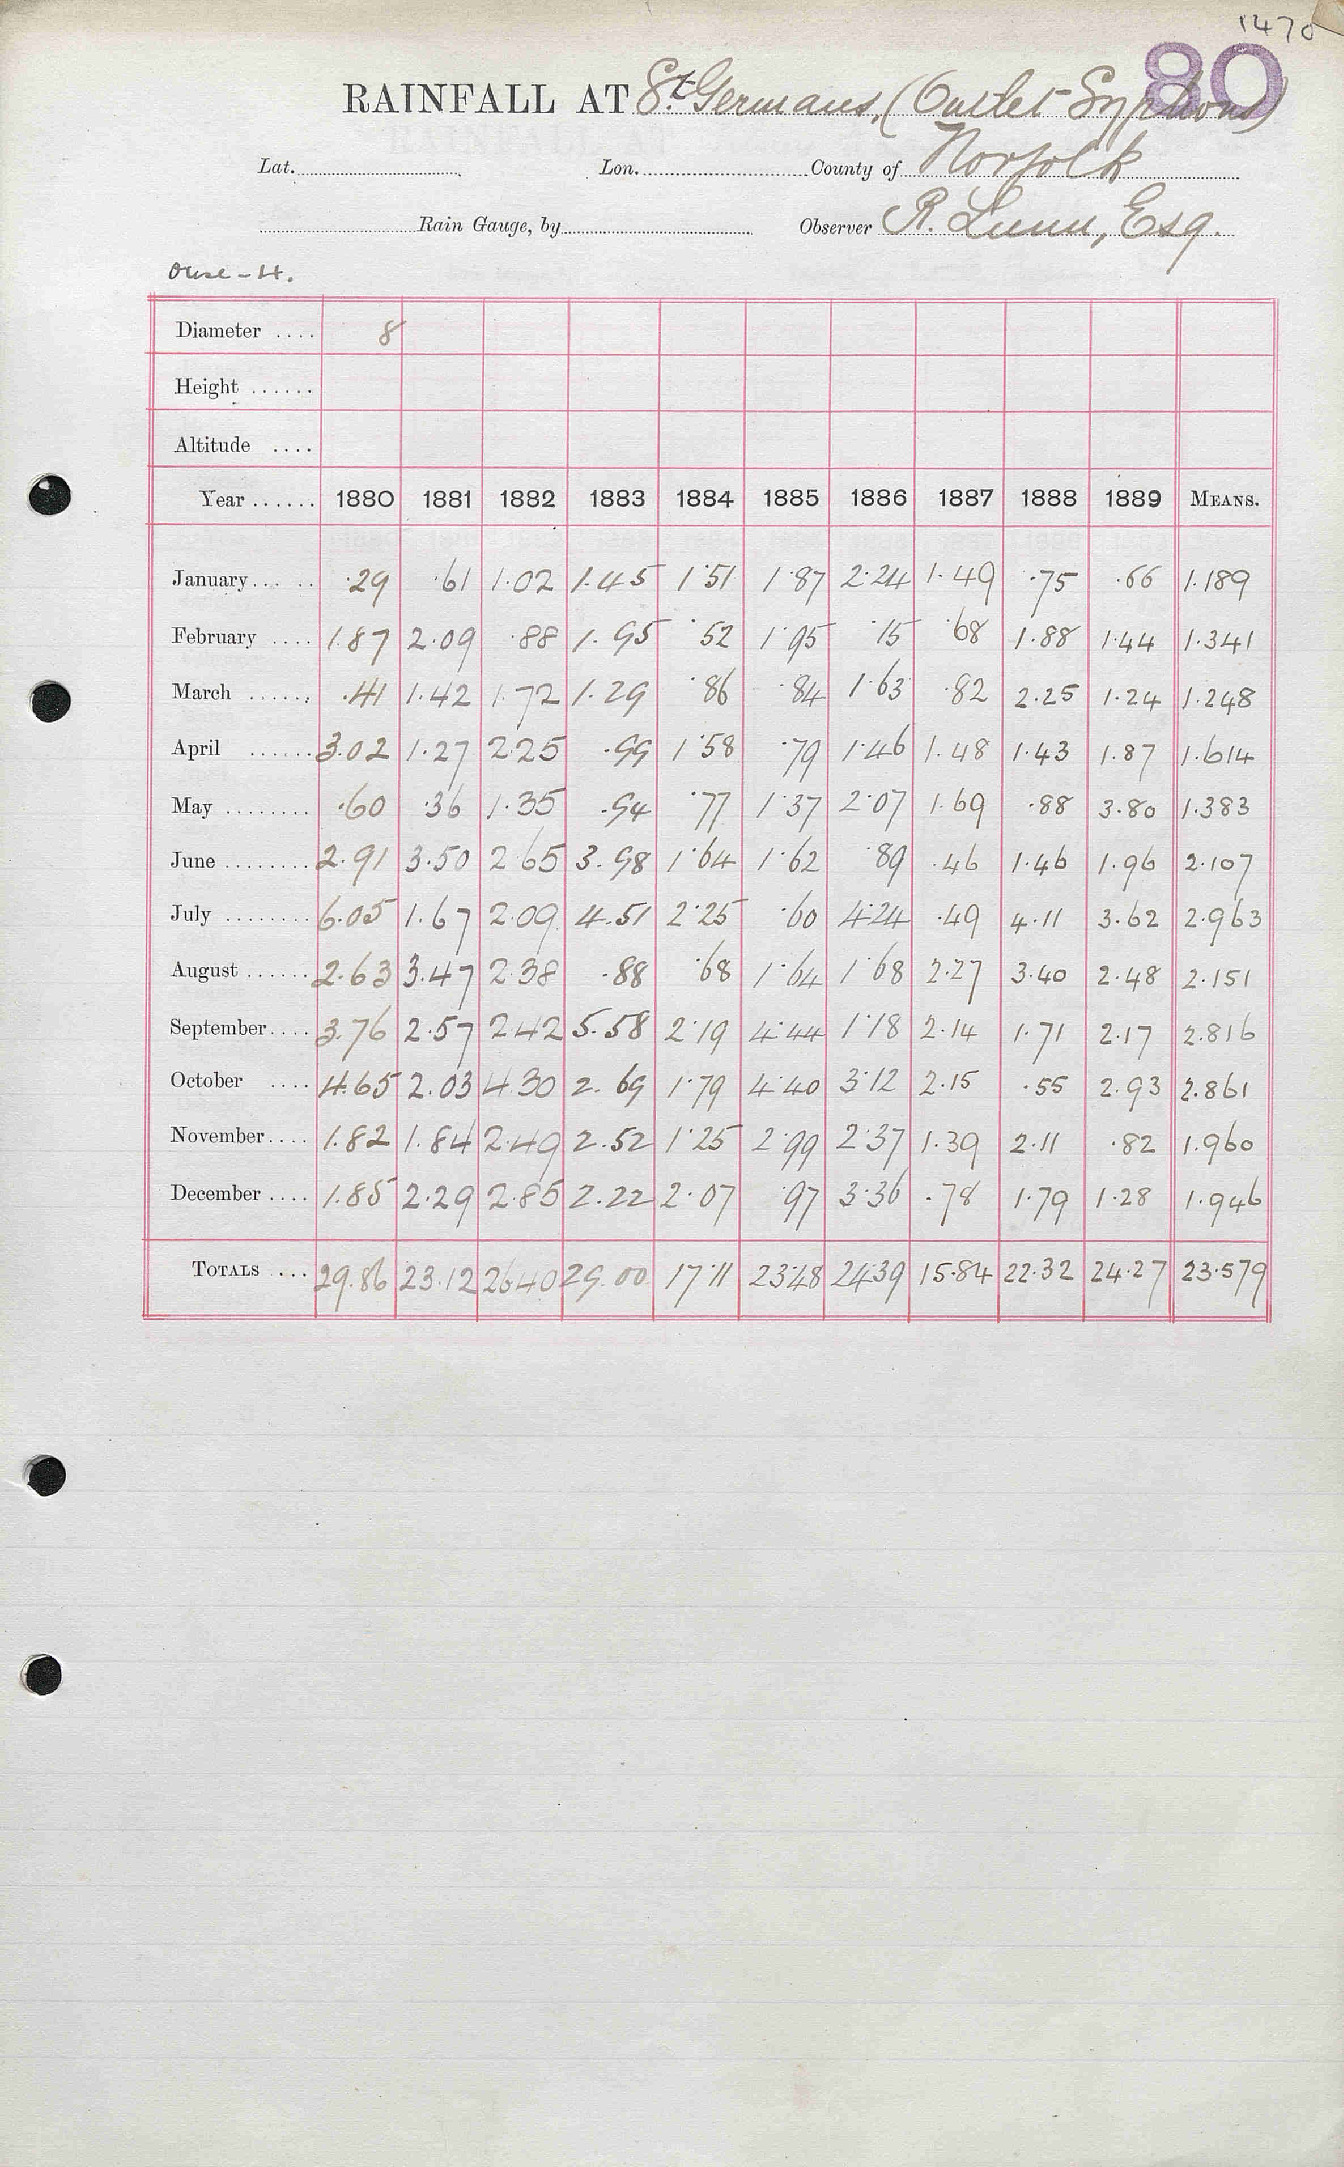 1470
80
RAINFALL AT St. Germans, (Outlet Syphons)
Lat. Lon. County of Norfolk
Rain Gauge, by Observer R. Lunn, Esq.
Ouse - H.
Diameter .... 8
Height ......
Altitude ....
Year ...... 1880 1881 1882 1883 1884 1885 1886 1887 1888 1889 MEANS.
January ... .. .29 .61 1.02 1.45 1.51 1.87 2.24 1.49 .75 .66 1.189
February .... 1.87 2.09 .88 1.95 .52 1.95 .15 .68 1.88 1.44 1.341
March ...... .41 1.42 1.72 1.29 .86 .84 1.63 .82 2.25 1.24 1.248
April ...... 3.02 1.27 2.25 .99 1.58 .79 1.46 1.48 1.43 1.87 1.614
May ........ .60 .36 1.35 .94 .77 1.37 2.07 1.69 .88 3.80 1.383
June ........ 2.91 3.50 2.65 3.98 1.64 1.62 .89 .46 1.46 1.96 2.107
July ........ 6.05 1.67 2.09 4.51 2.25 .60 4.24 .49 4.11 3.62 2.963
August ...... 2.63 3.47 2.38 .88 .68 1.64 1.68 2.27 3.40 2.48 2.151
September .... 3.76 2.57 2.42 5.58 2.19 4.44 1.18 2.14 1.71 2.17 2.816
October .... 4.65 2.03 4.30 2.69 1.79 4.40 3.12 2.15 .55 2.93 2.861
November .... 1.82 1.84 2.49 2.52 1.25 2.99 2.37 1.39 2.11 .82 1.960
December .... 1.85 2.29 2.85 2.22 2.07 .97 3.36 .78 1.79 1.28 1.946
TOTALS .... 29.86 23.12 26.40 29.00 17.11 23.48 24.39 15.84 22.32 24.27 23.579